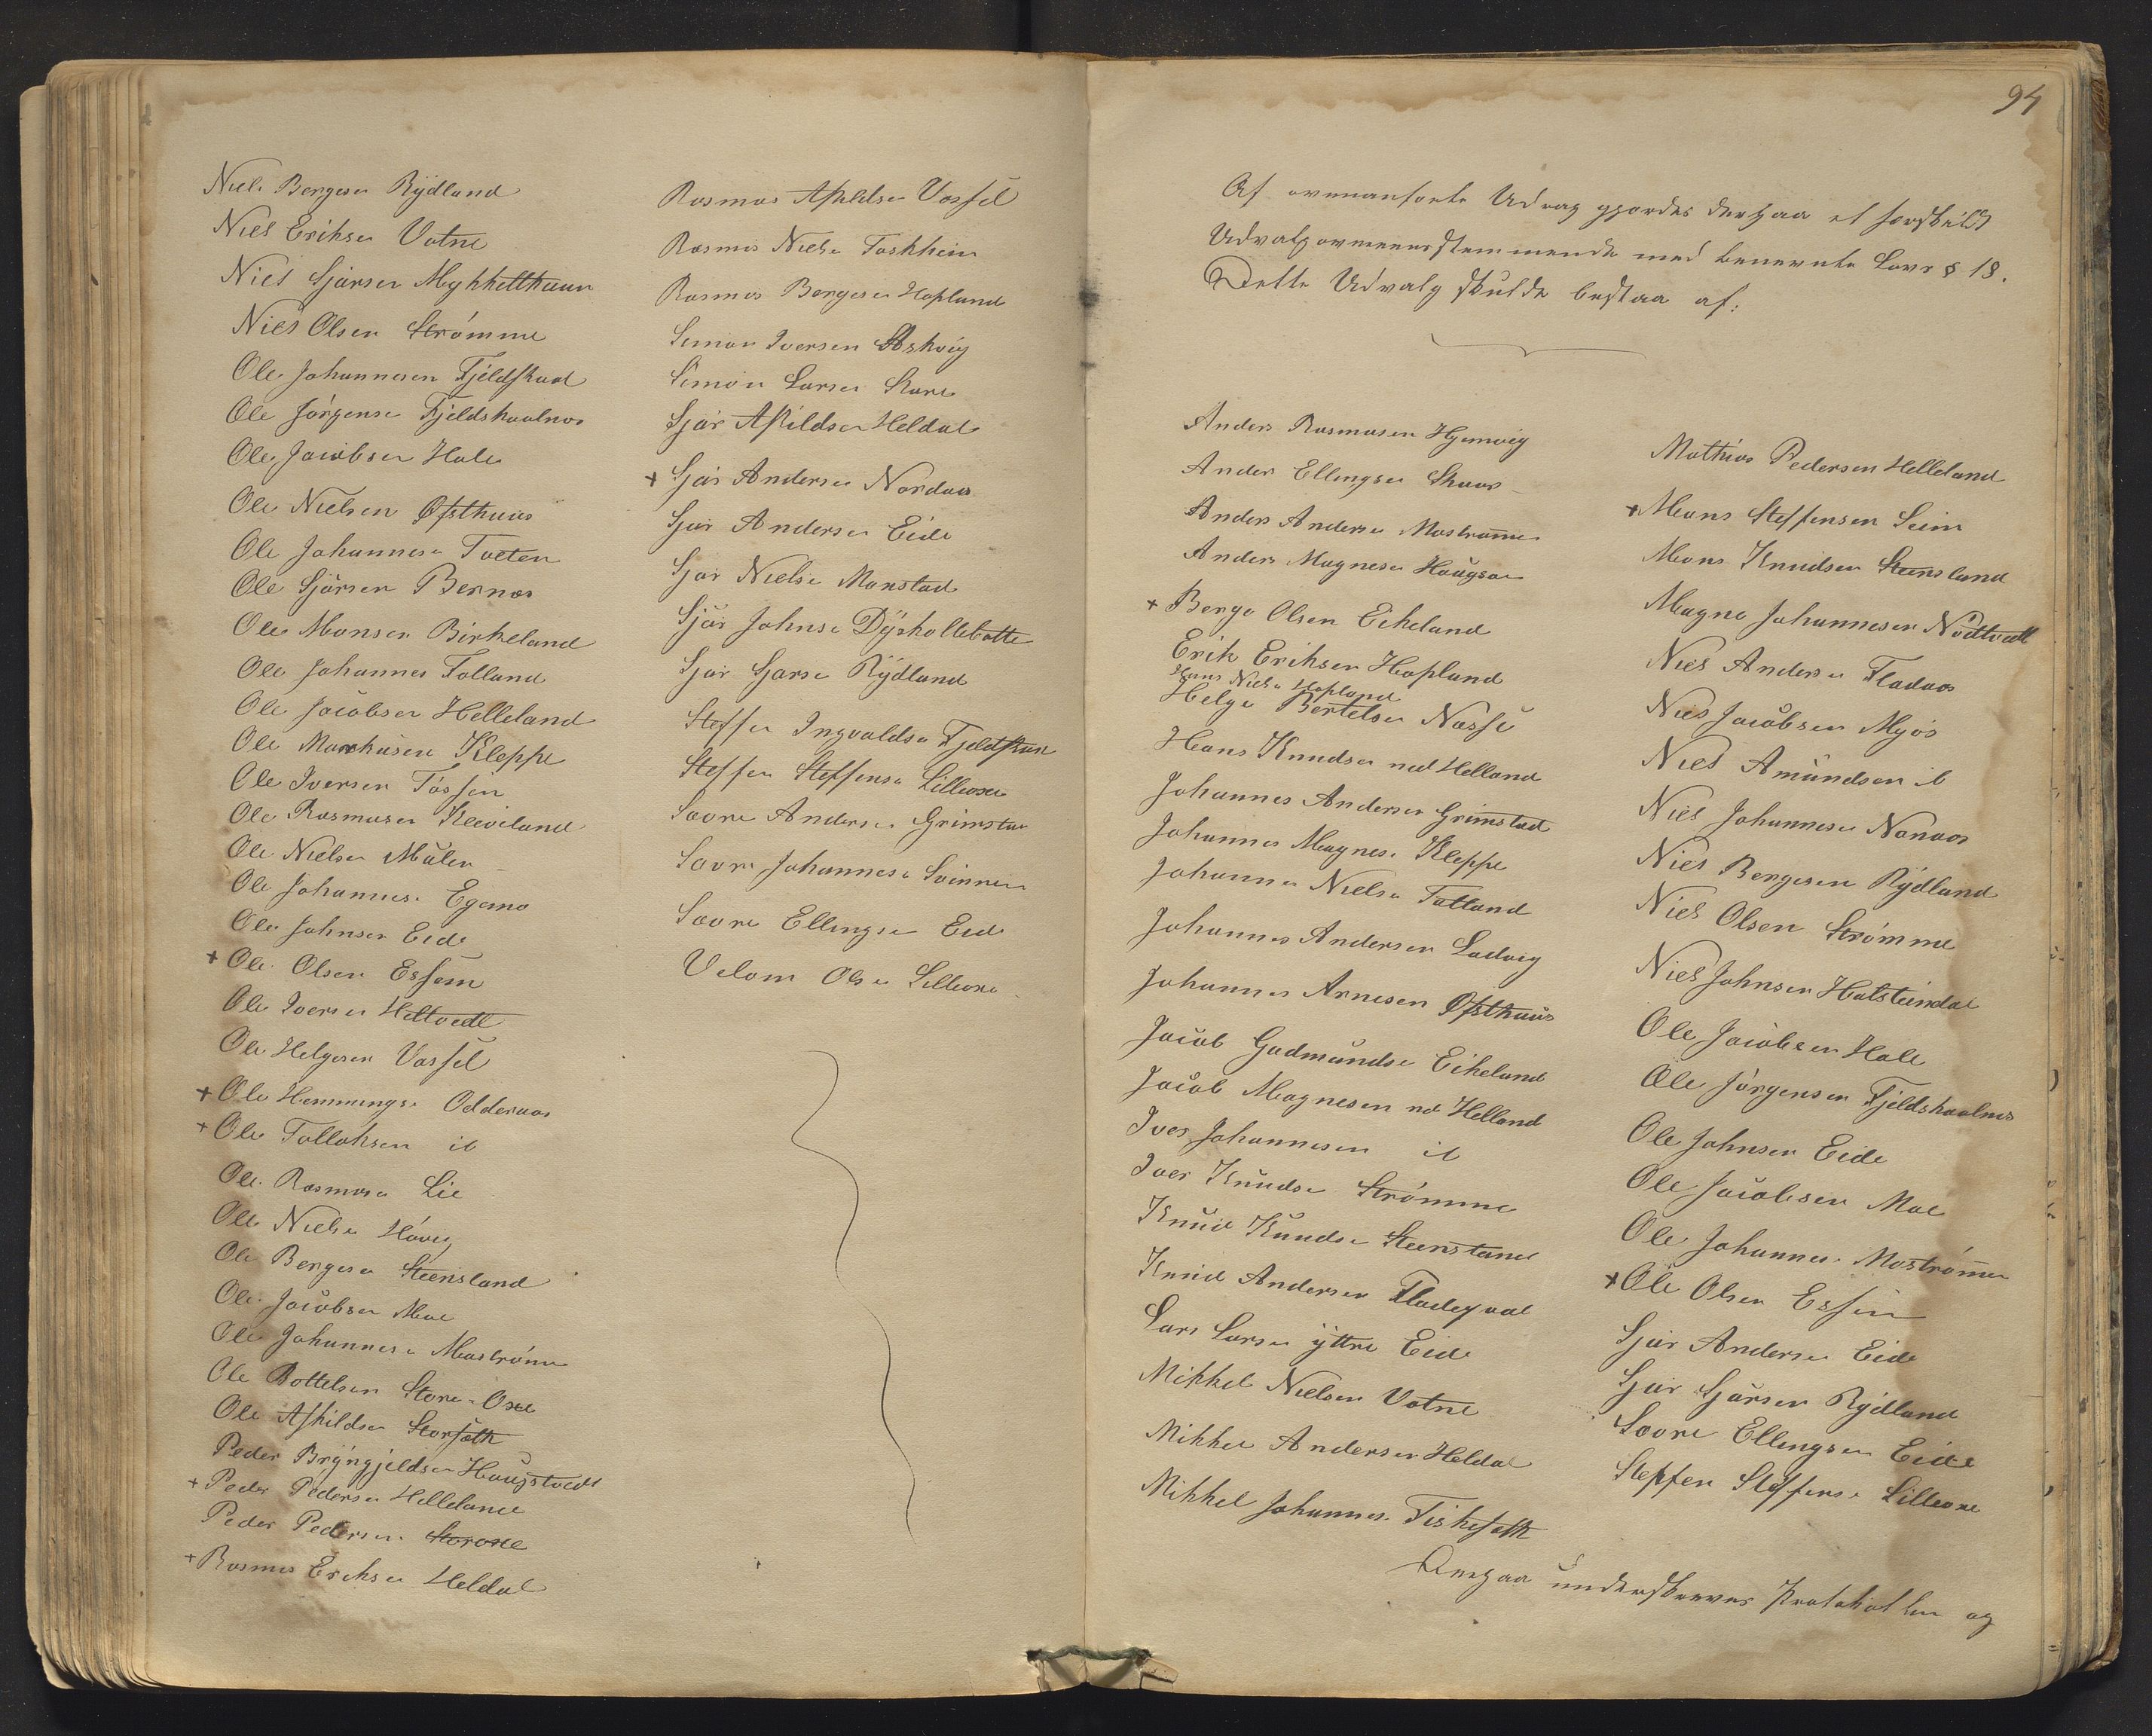 Niels Bergesen Rÿdland
Niels Eriksen Votne
Niels Sjursen Mykketthuun
Niels Olsen Strömme
Ole Johannesen Fjeldskaal
Ole Jörgense Fjeldskaalnes
Ole Jacobsen Hole
Ole Nielsen Øfsthuus
Ole Johannesen Tveten
Ole Sjursen Bernæs
Ole Monsen Birkeland
Ole Johannes Tolland
Ole Jacobsen Helleland
Ole Markusen Kleppe
Ole Iversen Tössen
Ole Rasmusen Kleiveland
Ole Nielsen Mulen
Ole Johannes. Egemo
Ole Johnsen Eide
+ Ole Olsen Essem
Ole Iversen Hettvedt
Ole Helgesen Vassel
+ Ole Hemmings. Odderaas
+ Ole Tollaksen ib
Ole Rasmusen Lie
Ole Nielsen Hövig
Ole Bergesen Steensland
Ole Jacobsen Moe
Ole Johannesen Moströmen
Ole Bottelsen Store-Oxe
Ole Askildsen Storsæth
Peder Brÿngjeldsen Haugstvedt
+ Peder Pedersen Helleland
Peder Pedersen Storoxe
+ Rasmus Eriksen Heldal
Rasmus Askildsen Vassel
Rasmus Nielse Toskheim
Rasmus Bergesen Hopland
Simon Iversen Askvig
Simon Larsen Skare
Sjur Askildsen Heldal
+ Sjur Andersen Nordaas
Sjur Andersen Eide
Sjur Nielse Manstad
Sjur Johnse Dÿrkollebotte
Sjur Sjurse Rÿdland
Steffen Ingvaldse Fjeldskaal
Steffen Steffense Lilleoxe
Sovre Andersen Grimstad
Sovre Johannese Svinnen
Sovre Ellingsen Eide
Velom Olsen Lilleoxe
94
Af ovenanførte Udrag gjordes derpaa et særskildt
Udvalg overeensstemmende med benevnte Lovs § 18.
Dette Udvalg skulde bestaa af:
Anders Rasmusen Hjemvig
Anders Ellingsen Skaar
Anders Andersen Mostrømen
Anders Magnesen Haugsøen
+ Berge Olsen Eikeland
Erik Eriksen Hopland
Hans Nielse Hopland
Helge Bertelsen Nosse
Hans Knudsen ned Helland
Johannes Andersen Grimstad
Johannes Magnes. Kleppe
Johannes Nielse Totland
Johannes Andersen Ladvig
Johannes Arnesen Øfsthuus
Jacob Gudmundse Eikeland
Jacob Magnesen nd Helland
Iver Johannesen ib
Iver Knudse Strömme
Knud Knudse Steensland
Knud Andersen Fladegaal
Lars Larsen ÿttre Eide
Mikkel Nielsen Votne
Mikkel Andersen Heldal
Mikkel Johannes. Fiskesæth
Mathias Pedersen Helleland
+ Mons Steffensen Seim
Mons Knudsen Steensland
Magne Johannesen Nödtvedt
Niels Andersen Fladaas
Niels Jacobsen Myös
Niels Amundsen ib
Niels Johannesen Nonaas
Niels Bergesen Rÿdland
Niels Olsen Strömme
Niels Johnsen Halsteindal
Ole Jacobsen Hole
Ole Jörgensen Fjeldskaalnes
Ole Johnsen Eide
Ole Jacobsen Moe
Ole Johannes. Moströmen
+ Ole Olsen Essim
Sjur Andersen Eide
Sjur Sjursen Rÿdland
Sovre Ellingsen Eide
Steffen Steffens. Lilleoxe
Derpaa underskreves Protokollen og